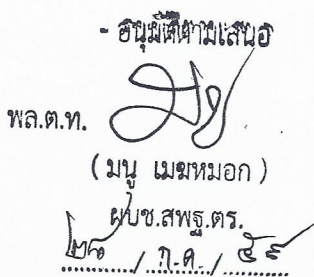 - อนุมัติตามเสนอ
พล.ต.ท.
( มนู เมฆหมอก )
ผบช.สพฐ.ตร.
๒๘ / ก.ค. / ๕๙